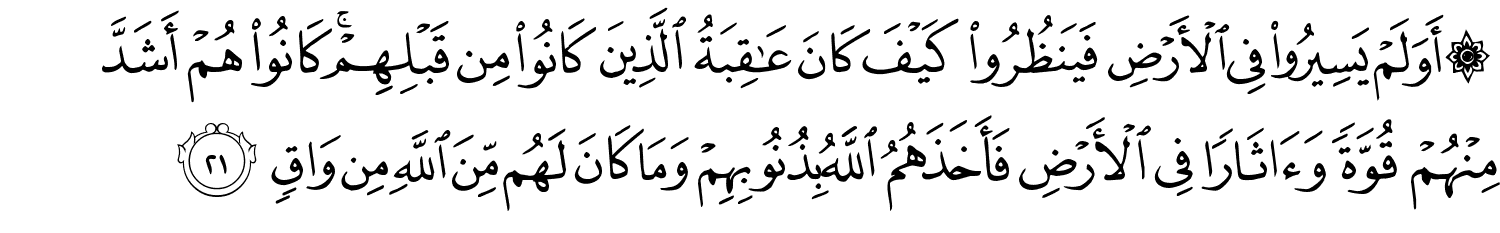 ۞ أَوَلَمْ يَسِيرُوا۟ فِى ٱلْأَرْضِ فَيَنظُرُوا۟ كَيْفَ كَانَ عَـٰقِبَةُ ٱلَّذِينَ كَانُوا۟ مِن قَبْلِهِمْ ۚ كَانُوا۟ هُمْ أَشَدَّ
مِنْهُمْ قُوَّةً وَءَاثَارًا فِى ٱلْأَرْضِ فَأَخَذَهُمُ ٱللَّهُ بِذُنُوبِهِمْ وَمَا كَانَ لَهُم مِّنَ ٱللَّهِ مِن وَاقٍ ٢١